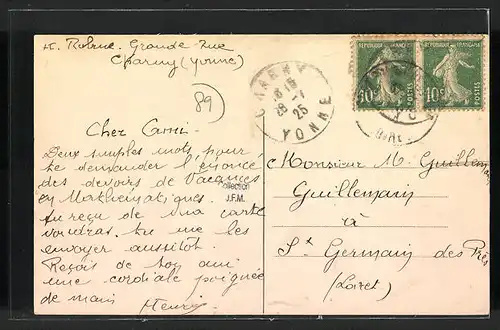 Grande Rue
Charny (Yonne)
89
Cher Cami.
Deux simples mots pour
te demander l'énoncé
des devoirs de Vacances
en Mathematiques.
de ma carte
voudras- tu me les
envoyer aussitot.
Reçois de ton ami
une cordiale poignée
de main
Henri
Collection
J.F.M.
CHARNY
28 - 1
25
YONNE
REPUBLIQUE FRANÇAISE
10c
POSTES
REPUBLIQUE FRANÇAISE
10c
POSTES
Monsieur M. Guillemain
Guillemain
à
St Germain des Prés
(Loiret)